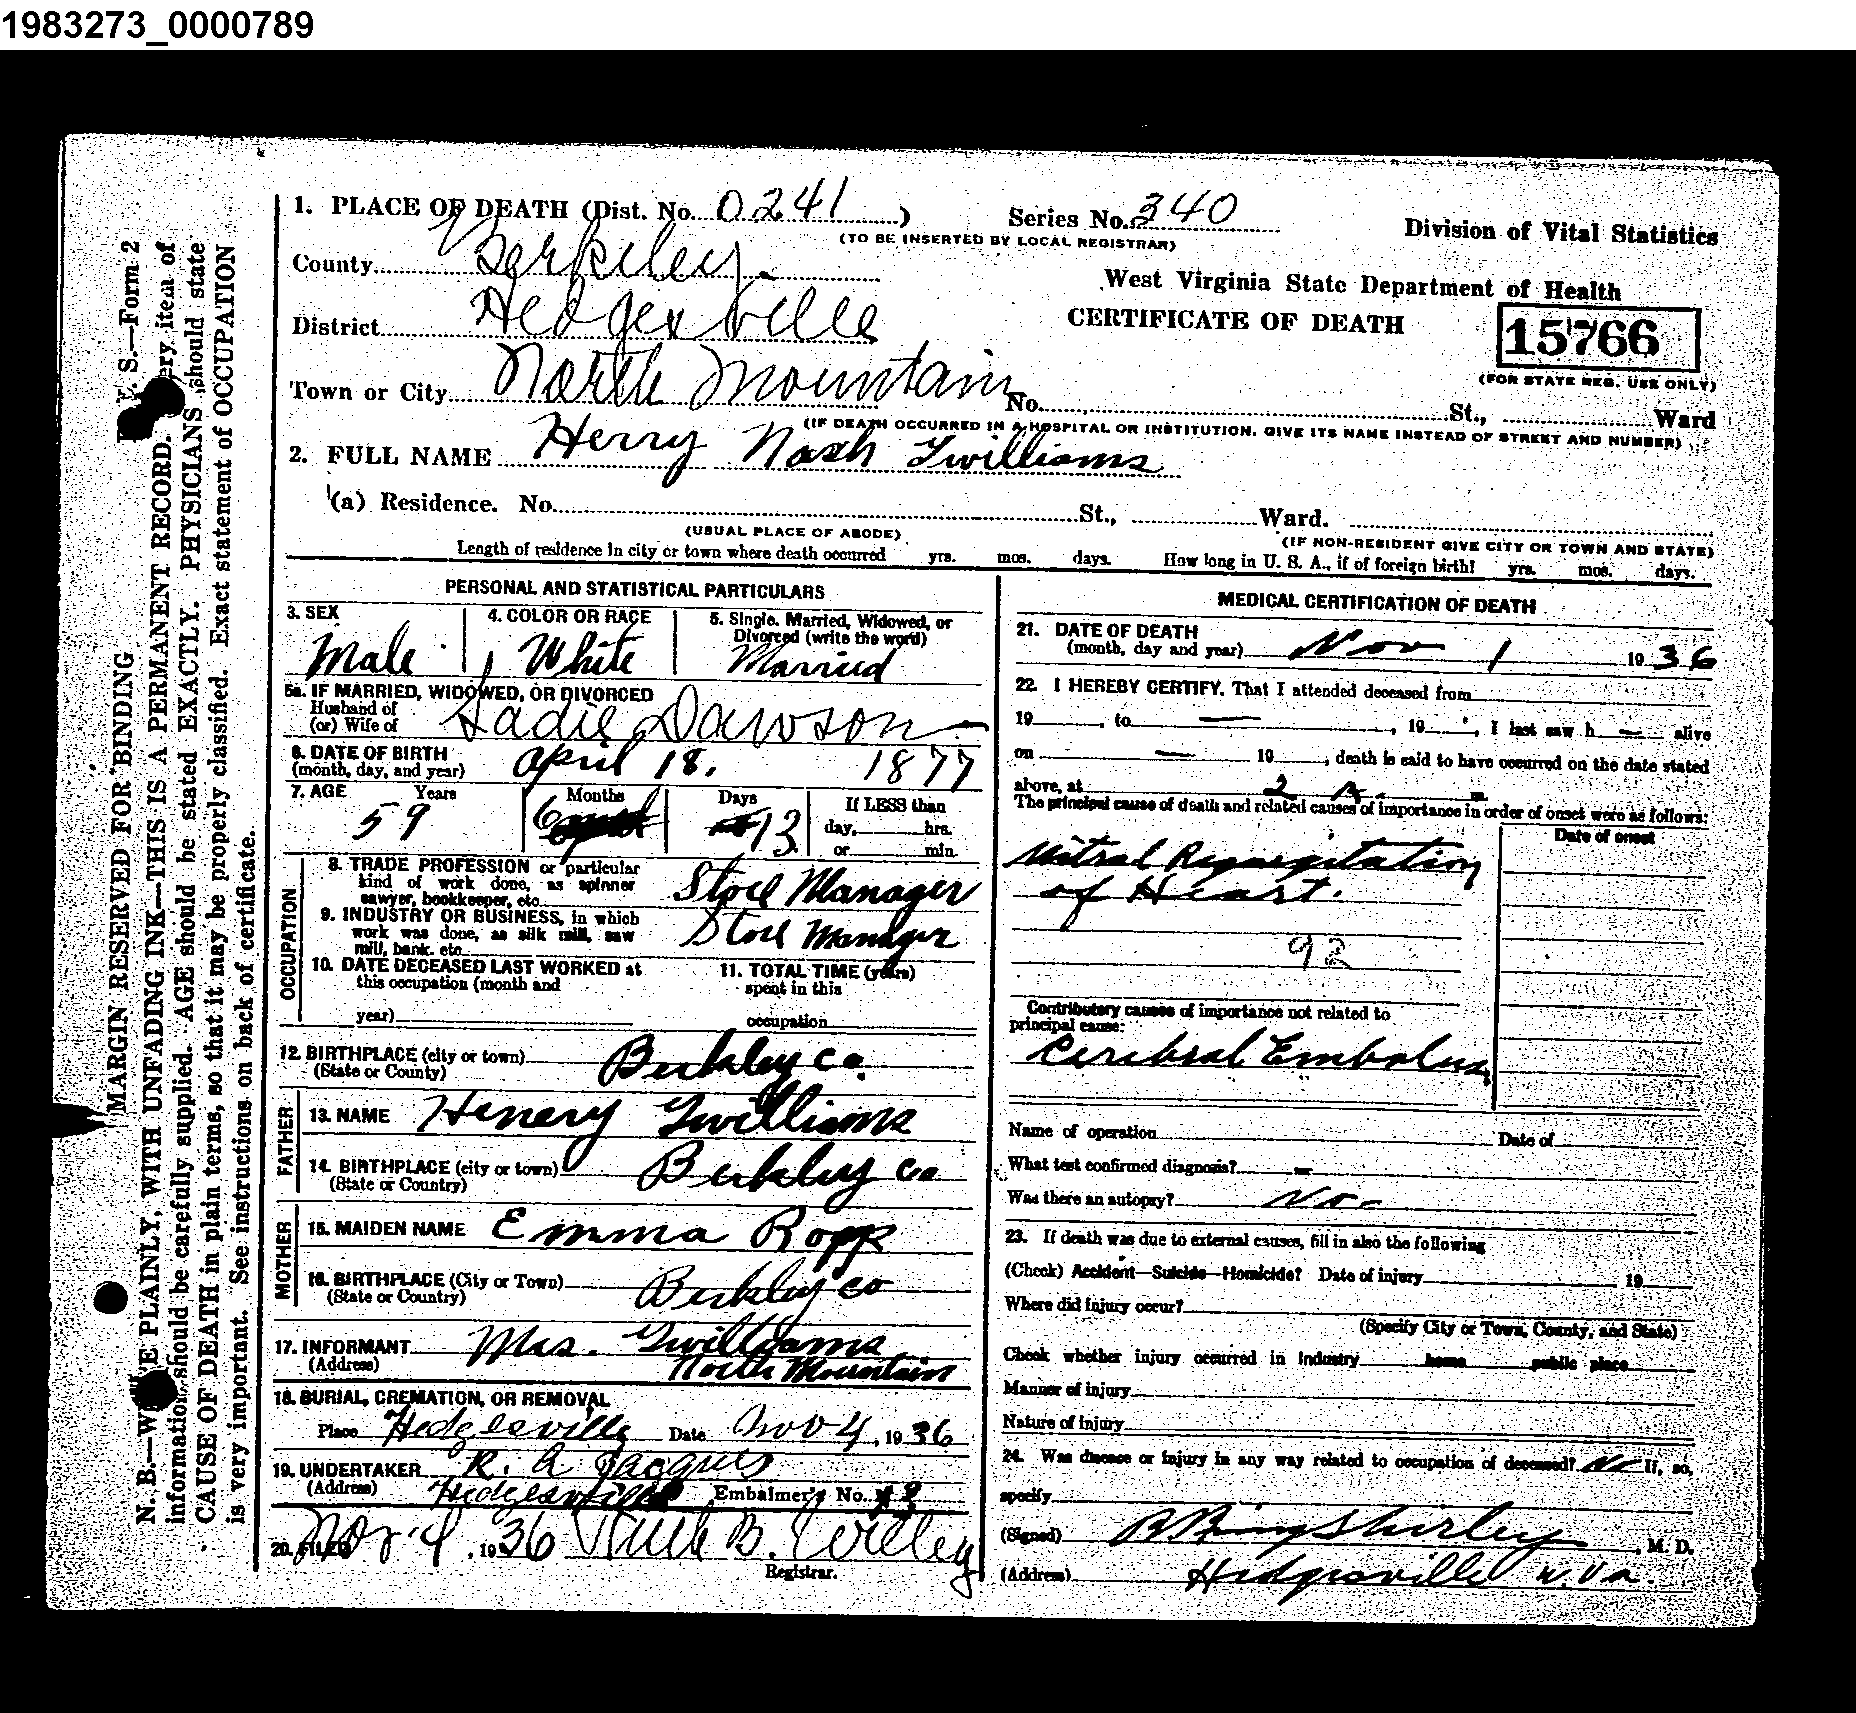 1983273_0000789
1. PLACE OF DEATH (Dist. No. 0241) Series No. 340
(TO BE INSERTED BY LOCAL REGISTRAR)
Division of Vital Statistics
County Berkeley
West Virginia State Department of Health
District Hedgesville
CERTIFICATE OF DEATH
15766
(FOR STATE REG. USE ONLY)
Town or City North Mountain No. St., Ward
(IF DEATH OCCURRED IN A HOSPITAL OR INSTITUTION, GIVE ITS NAME INSTEAD OF STREET AND NUMBER)
2. FULL NAME Henry Nash Twilliams
(a) Residence. No. St., Ward.
(USUAL PLACE OF ABODE) (IF NON-RESIDENT GIVE CITY OR TOWN AND STATE)
Length of residence in city or town where death occurred yrs. mos. days. How long in U. S. A., if of foreign birth? yrs. mos. days.
PERSONAL AND STATISTICAL PARTICULARS
3. SEX 4. COLOR OR RACE 5. Single, Married, Widowed, or
Divorced (write the word)
Male White Married
5a. IF MARRIED, WIDOWED, OR DIVORCED
Husband of
(or) Wife of Sadie Dawson
6. DATE OF BIRTH
(month, day, and year) April 18, 1877
7. AGE Years Months Days If LESS than
59 6 13 day, hrs.
or min.
OCCUPATION
8. TRADE PROFESSION or particular
kind of work done, as spinner
sawyer, bookkeeper, etc. Store Manager
9. INDUSTRY OR BUSINESS, in which
work was done, as silk mill, saw
mill, bank. etc. Store Manager
10. DATE DECEASED LAST WORKED at
this occupation (month and
year)
11. TOTAL TIME (years)
spent in this
occupation
12. BIRTHPLACE (city or town) Berkley Co.
(State or County)
FATHER
13. NAME Henery Twilliams
14. BIRTHPLACE (city or town) Berkley Co
(State or Country)
MOTHER
15. MAIDEN NAME Emma Ropp
16. BIRTHPLACE (City or Town) Berkley Co
(State or Country)
17. INFORMANT Mrs. Twilliams
(Address) North Mountain
18. BURIAL, CREMATION, OR REMOVAL
Place Hedgesville Date Nov 4, 1936
19. UNDERTAKER R. A Jacques
(Address) Hedgesville Embalmer's No.
20. FILED Nov. 4, 1936 Ruth B.
Registrar.
MEDICAL CERTIFICATION OF DEATH
21. DATE OF DEATH
(month, day and year) Nov 1 1936
22. I HEREBY CERTIFY. That I attended deceased from
19 , to — , 19 , I last saw h — alive
on — 19 , death is said to have occurred on the date stated
above, at 2 A. m
The principal cause of death and related causes of importance in order of onset were as follows:
Date of onset
Mitral Regurgitation
of Heart.
92
Contributory causes of importance not related to
principal cause:
Cerebral Embolus
Name of operation Date of
What test confirmed diagnosis? –
Was there an autopsy? No –
23. If death was due to external causes, fill in also the following
(Check) Accident—Suicide—Homicide? Date of injury 19
Where did injury occur?
(Specify City or Town, County, and State)
Check whether injury occurred in industry home public place
Manner of injury
Nature of injury
24. Was disease or injury in any way related to occupation of deceased? No If, so,
specify
(Signed) Shirley, M. D.
(Address) Hedgesville W. Va.
S.—Form 2
MARGIN RESERVED FOR BINDING
N. B.— PLAINLY, WITH UNFADING INK—THIS IS A PERMANENT RECORD. item of
information should be carefully supplied. AGE should be stated EXACTLY. PHYSICIANS should state
CAUSE OF DEATH in plain terms, so that it may be properly classified. Exact statement of OCCUPATION
is very important. See instructions on back of certificate.